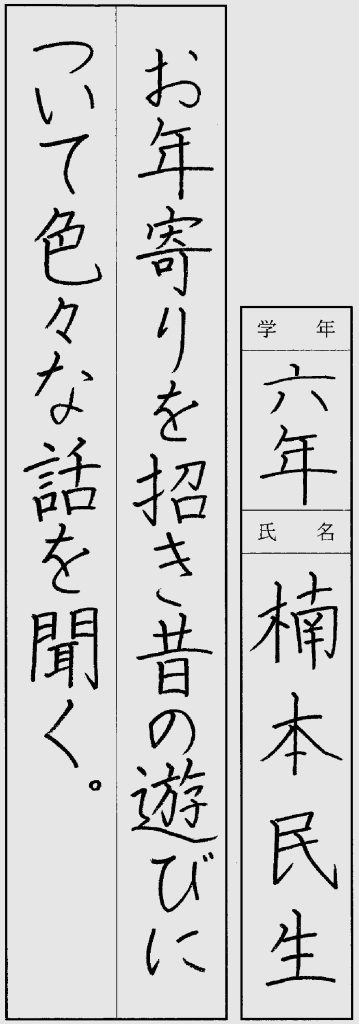 お年寄りを招き昔の遊びに
ついて色々な話を聞く。
学年
六年
氏名
楠本民生